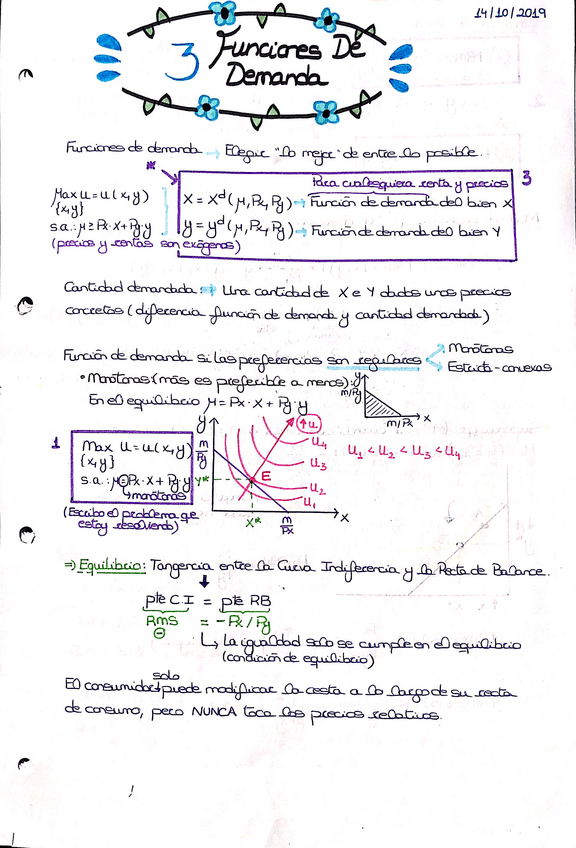 14/10/2019
3 Funciones De
Demanda
Funciones de demanda → Elegir "lo mejor" de entre lo posible.
*
Para cualesquiera renta y precios
3
Max u = u(x,y)
{x,y}
s.a.: μ ≥ Px·X + Py·y
(precios y rentas son exógenos)
X = Xᵈ(μ, Px, Py) → Función de demanda del bien X
y = yᵈ(μ, Px, Py) → Función de demanda del bien Y
Cantidad demandada: → Una cantidad de X e Y dados unos precios
concretos (diferencia función de demanda y cantidad demandada)
Función de demanda si las preferencias son regulares
Monótonas
Estricta-convexas
• Monótonas (más es preferible a menos):
En el equilibrio μ = Px·X + Py·y
y
m/Py
m/Px
x
1
Max U = u(x,y)
{x,y}
s.a.: μ = Px·X + Py·y
↳ monótonas
(Escribo el problema que
estoy resolviendo)
y
m/Py
y*
↑u
u4
u3
u2
u1
E
x*
m/Px
x
u1 < u2 < u3 < u4
⇒ Equilibrio: Tangencia entre la Curva Indiferencia y la Recta de Balance.
↓
pte C.I = pte RB
RMS = -Px/Py
⊖
↳ La igualdad solo se cumple en el equilibrio
(condición de equilibrio)
solo
El consumidor puede modificar la cesta a lo largo de su recta
de consumo, pero NUNCA toca los precios relativos.